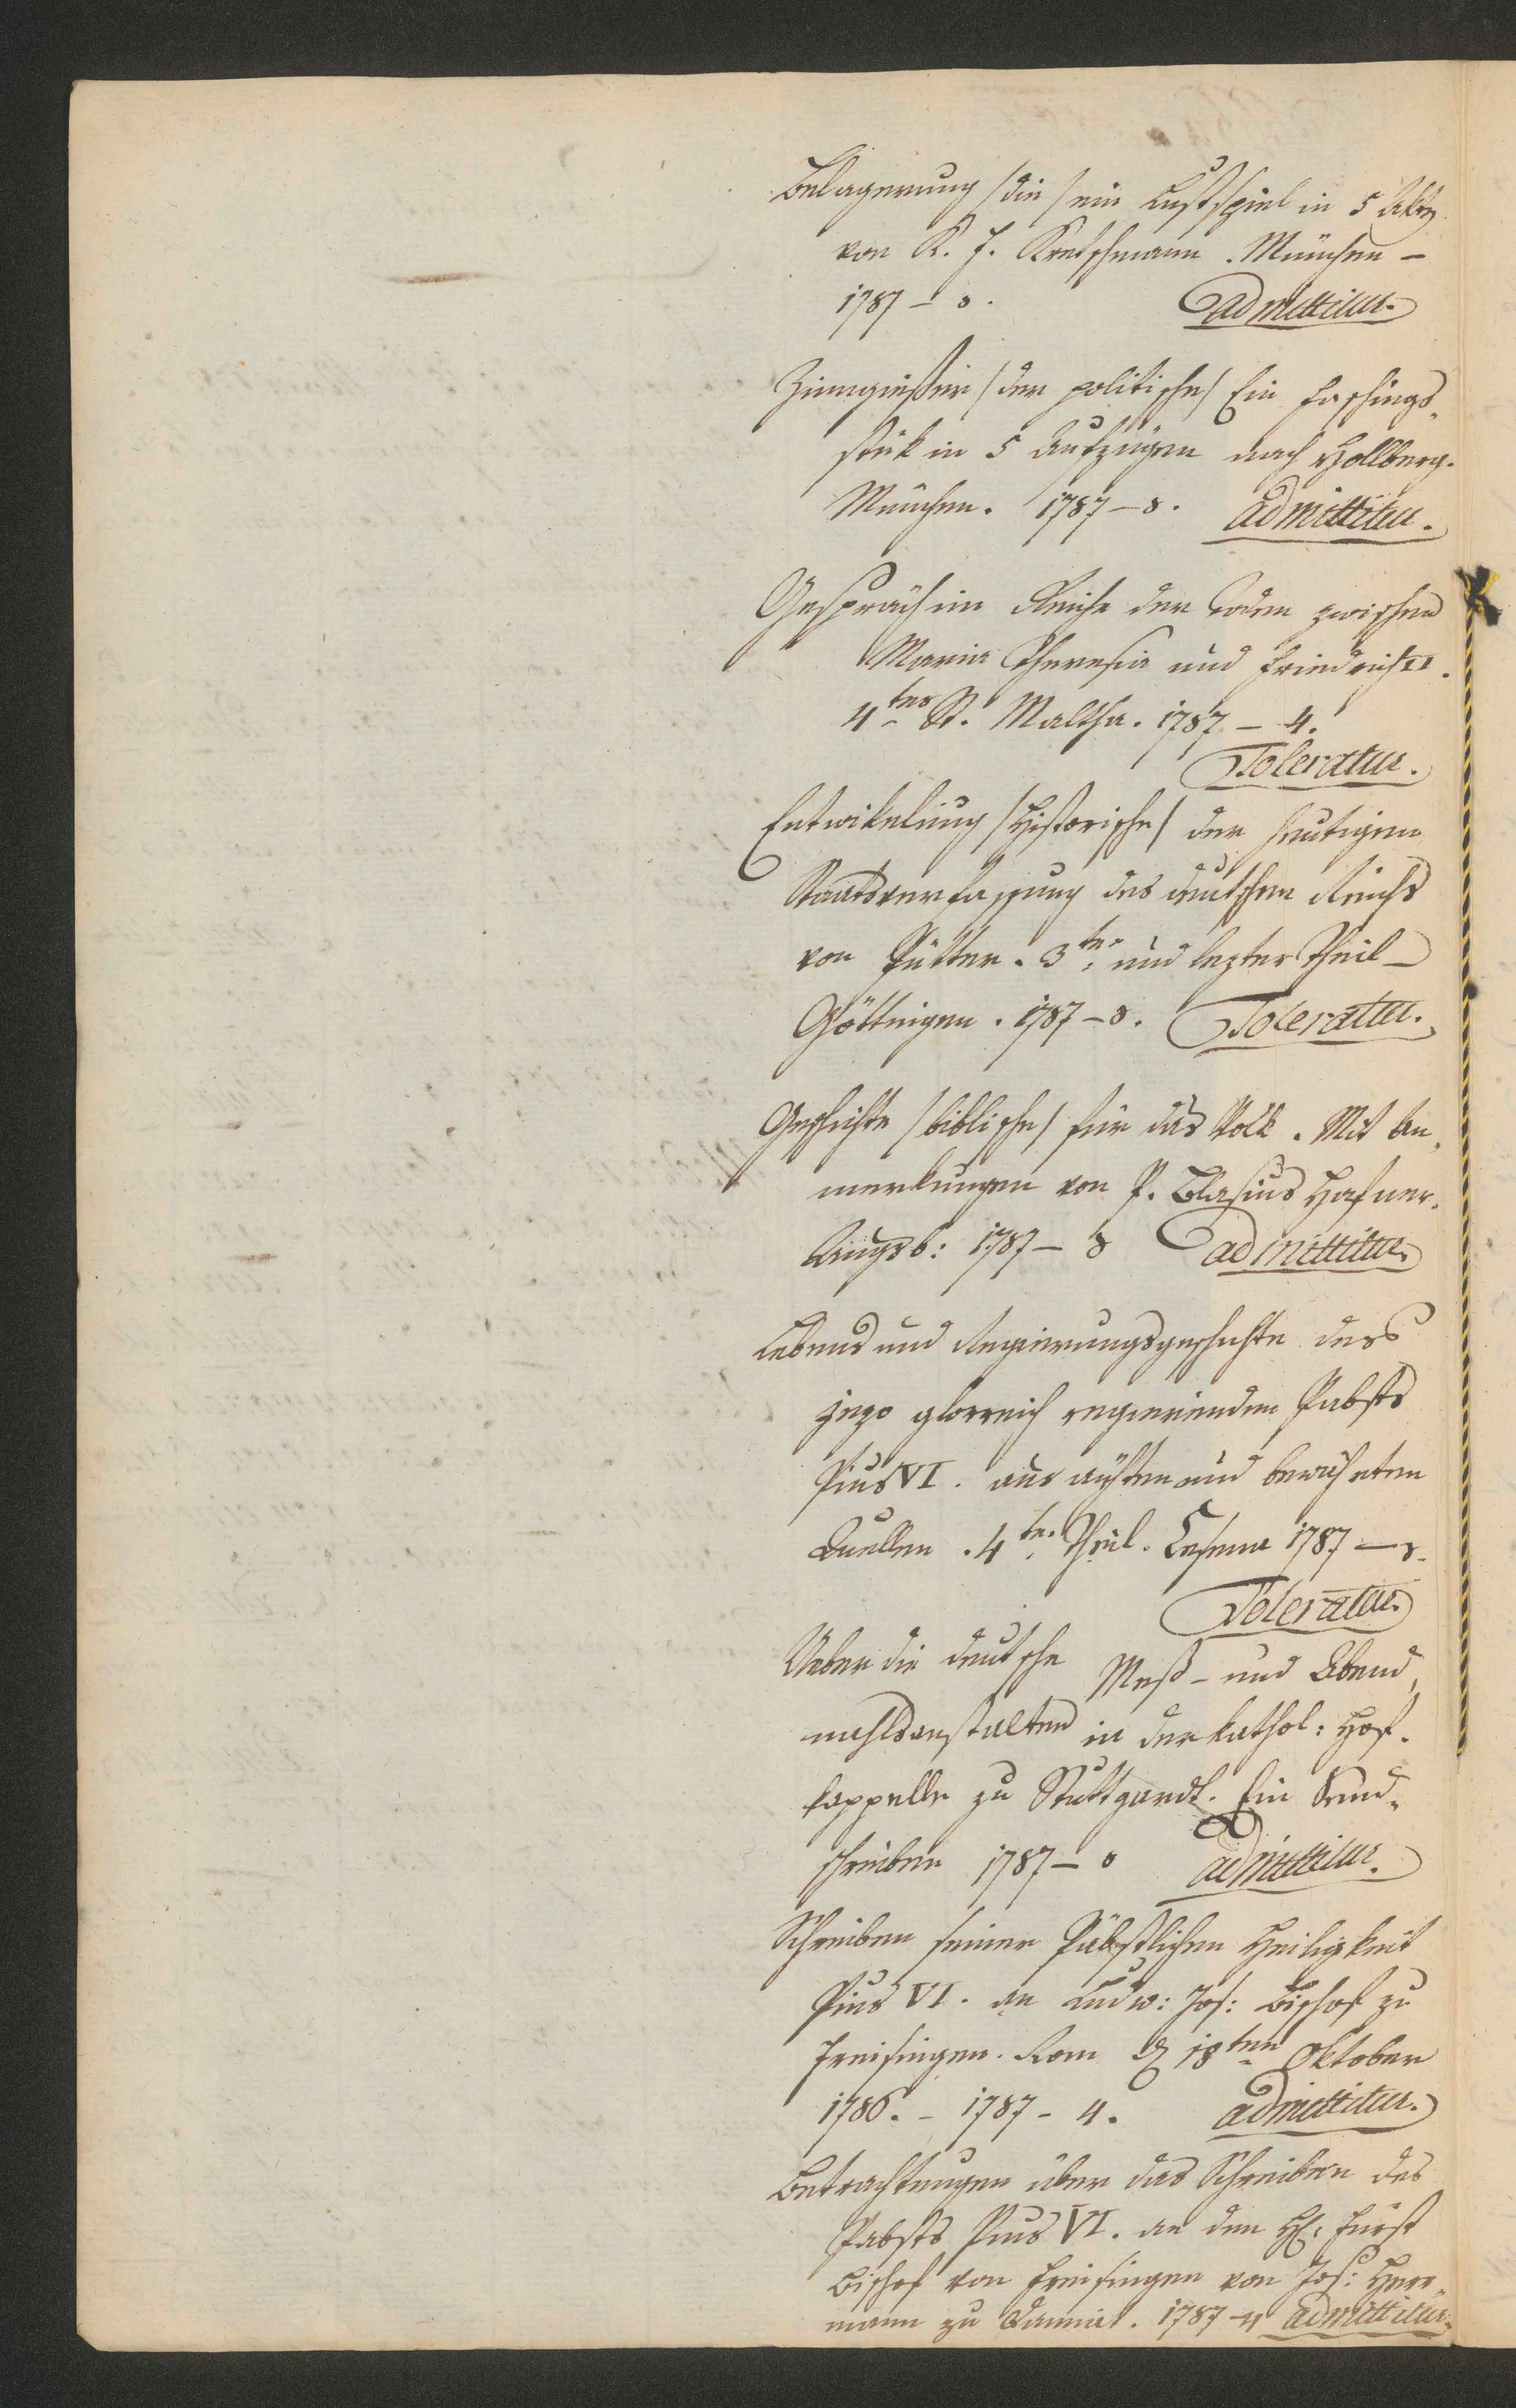 Belagerung /die/ ein Lustspiel in 5 Akten
von K. F. Kretschmann. München –
1787 – 8. admittitur.
Zinngießer /der politische/ Ein Faschings„
stük in 5 Aufzügen nach Hollberg.
München. 1787 – 8. admittitur.
Gespräch im Reiche der Toden zwischen
Maria Theresia und Friedrich II.
4tes St. Maltha. 1787 – 4.
Toleratur.
Entwikelung /Historische/ der heutigen
Staatsverfassung des deutschen Reichs
von Pütter. 3ter und lezter Theil –
Göttingen. 1787 – 8. Toleratur.
Geschichte /biblische/ für das Volk. Mit An„
merkungen von P. Blasius Hafner.
Augsb: 1787 – 8 admittitur.
Lebens und Regierungsgeschichte des
jezo glorreich regierenden Pabsts
Pius VI. aus ächten und bewährten
Quellen. 4ter Theil. Cesena 1787 – 8.
Toleratur.
Ueber die deutsche Meß- und Abend„
mahlsanstalten in der kathol: Hof„
kappelle zu Stuttgardt. Ein Send„
schreiben 1787 – 8 admittitur.
Schreiben seiner Päbstlichen Heiligkeit
Pius VI. an Ludw: Jos: Bischof zu
Freisingen. Rom d 18ten Oktober
1786. – 1787 – 4. admittitur.
Betrachtungen über das Schreiben des
Pabsts Pius VI. an den H: Fürst
Bischof von Freisingen von Jos: Herr„
mann zu Damiat. 1787 – 4 admittitur.